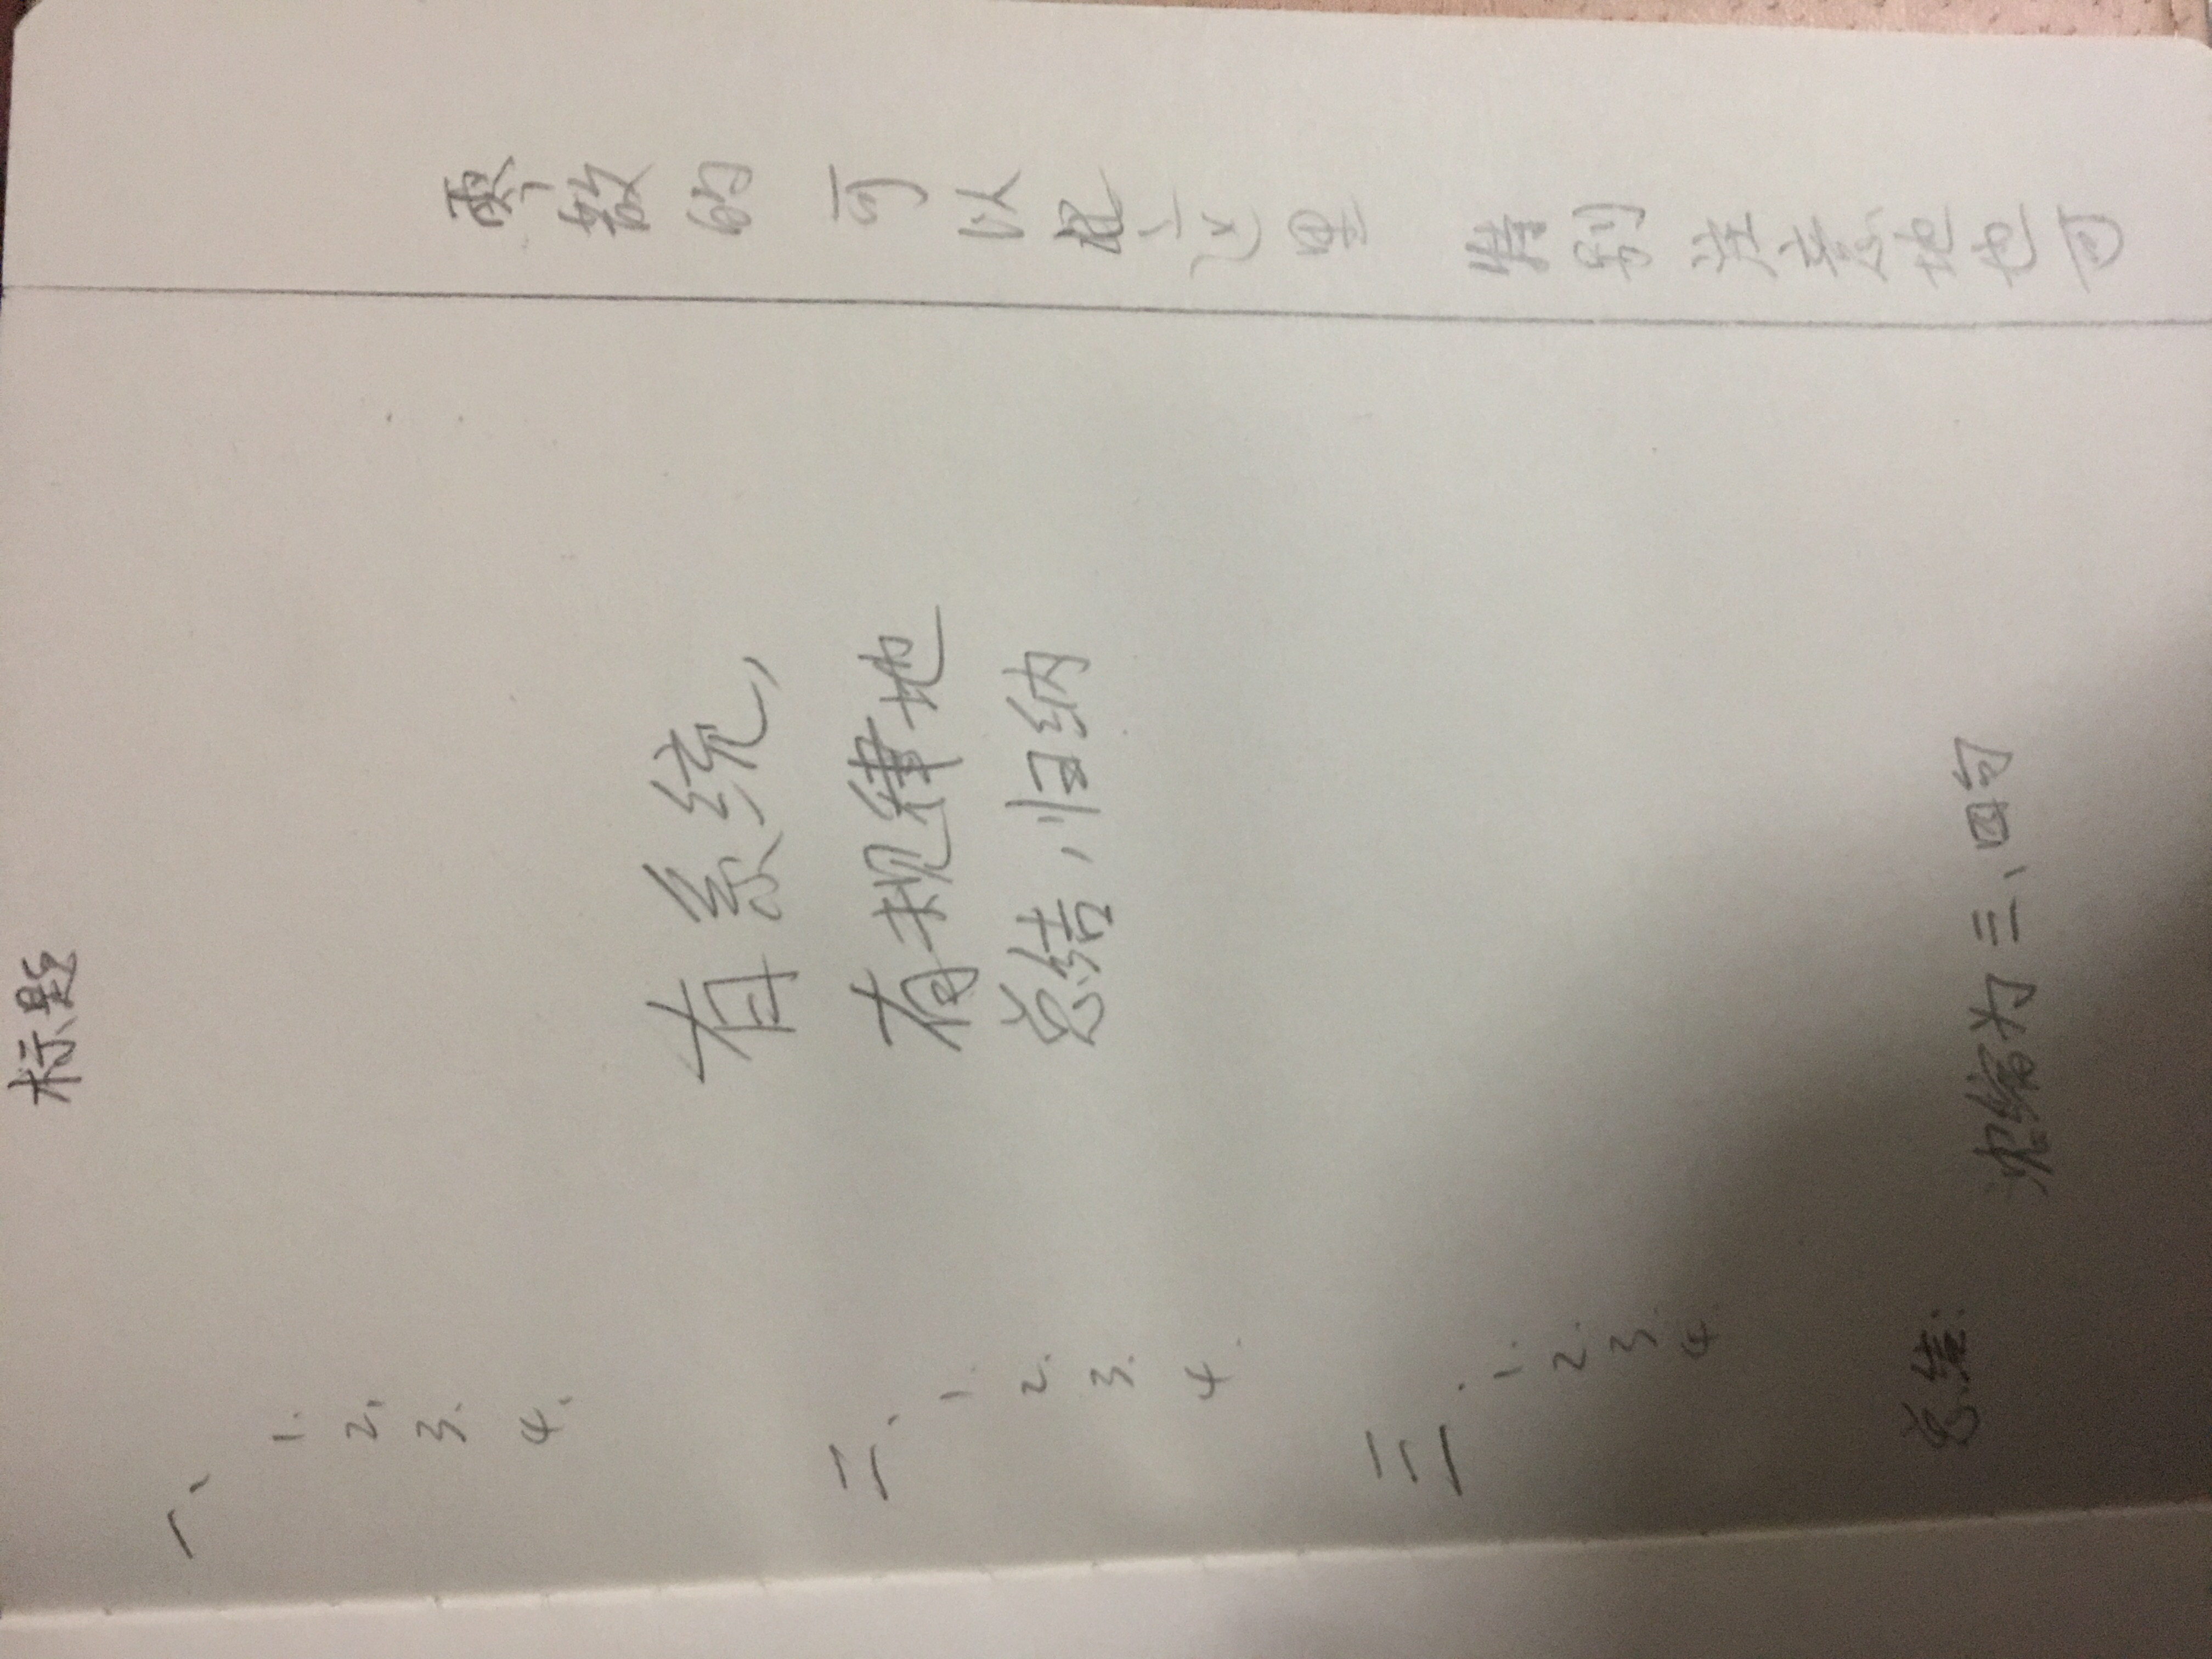 标题
一、
1.
2.
3.
4.
有系统,
有规律地
总结,归纳
二、
1.
2.
3.
4.
三.
1.
2.
3
4
总结:
浓缩为三、四句
零散的可以记这里 特别注意地也可